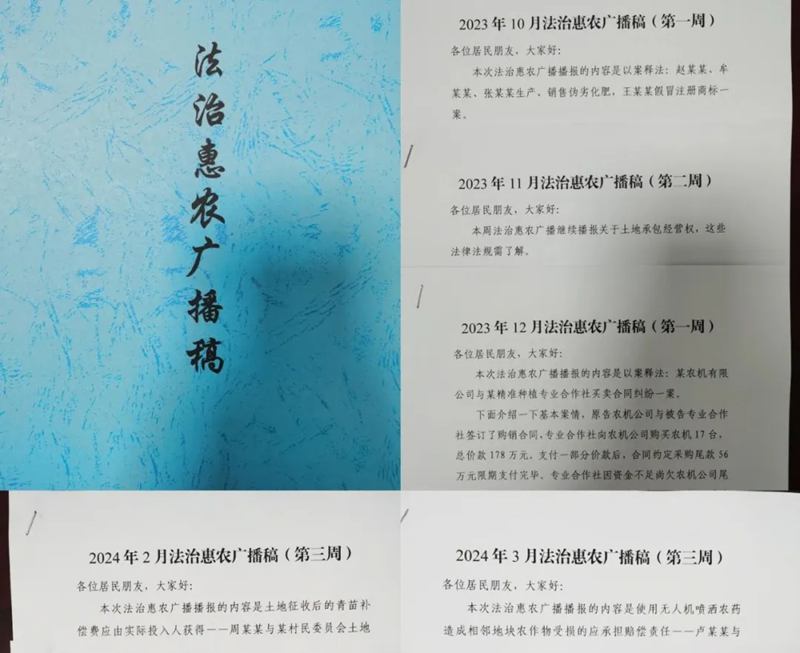 法治惠农广播稿
2023年10月法治惠农广播稿（第一周）
各位居民朋友，大家好：
本次法治惠农广播播报的内容是以案释法：赵某某、牟
某某、张某某生产、销售伪劣化肥，王某某假冒注册商标一
案。
2023年11月法治惠农广播稿（第二周）
各位居民朋友，大家好：
本周法治惠农广播继续播报关于土地承包经营权，这些
法律法规需了解。
2023年12月法治惠农广播稿（第一周）
各位居民朋友，大家好：
本次法治惠农广播播报的内容是以案释法：某农机有限
公司与某精准种植专业合作社买卖合同纠纷一案。
下面介绍一下基本案情，原告农机公司与被告专业合作
社签订了购销合同，专业合作社向农机公司购买农机17台，
总价款178万元。支付一部分价款后，合同约定采购尾款56
万元限期支付完毕。专业合作社因资金不足尚欠农机公司尾
2024年2月法治惠农广播稿（第三周）
各位居民朋友，大家好：
本次法治惠农广播播报的内容是土地征收后的青苗补
偿费应由实际投入人获得——周某某与某村民委员会土地
2024年3月法治惠农广播稿（第三周）
各位居民朋友，大家好：
本次法治惠农广播播报的内容是使用无人机喷洒农药
造成相邻地块农作物受损的应承担赔偿责任——卢某某与